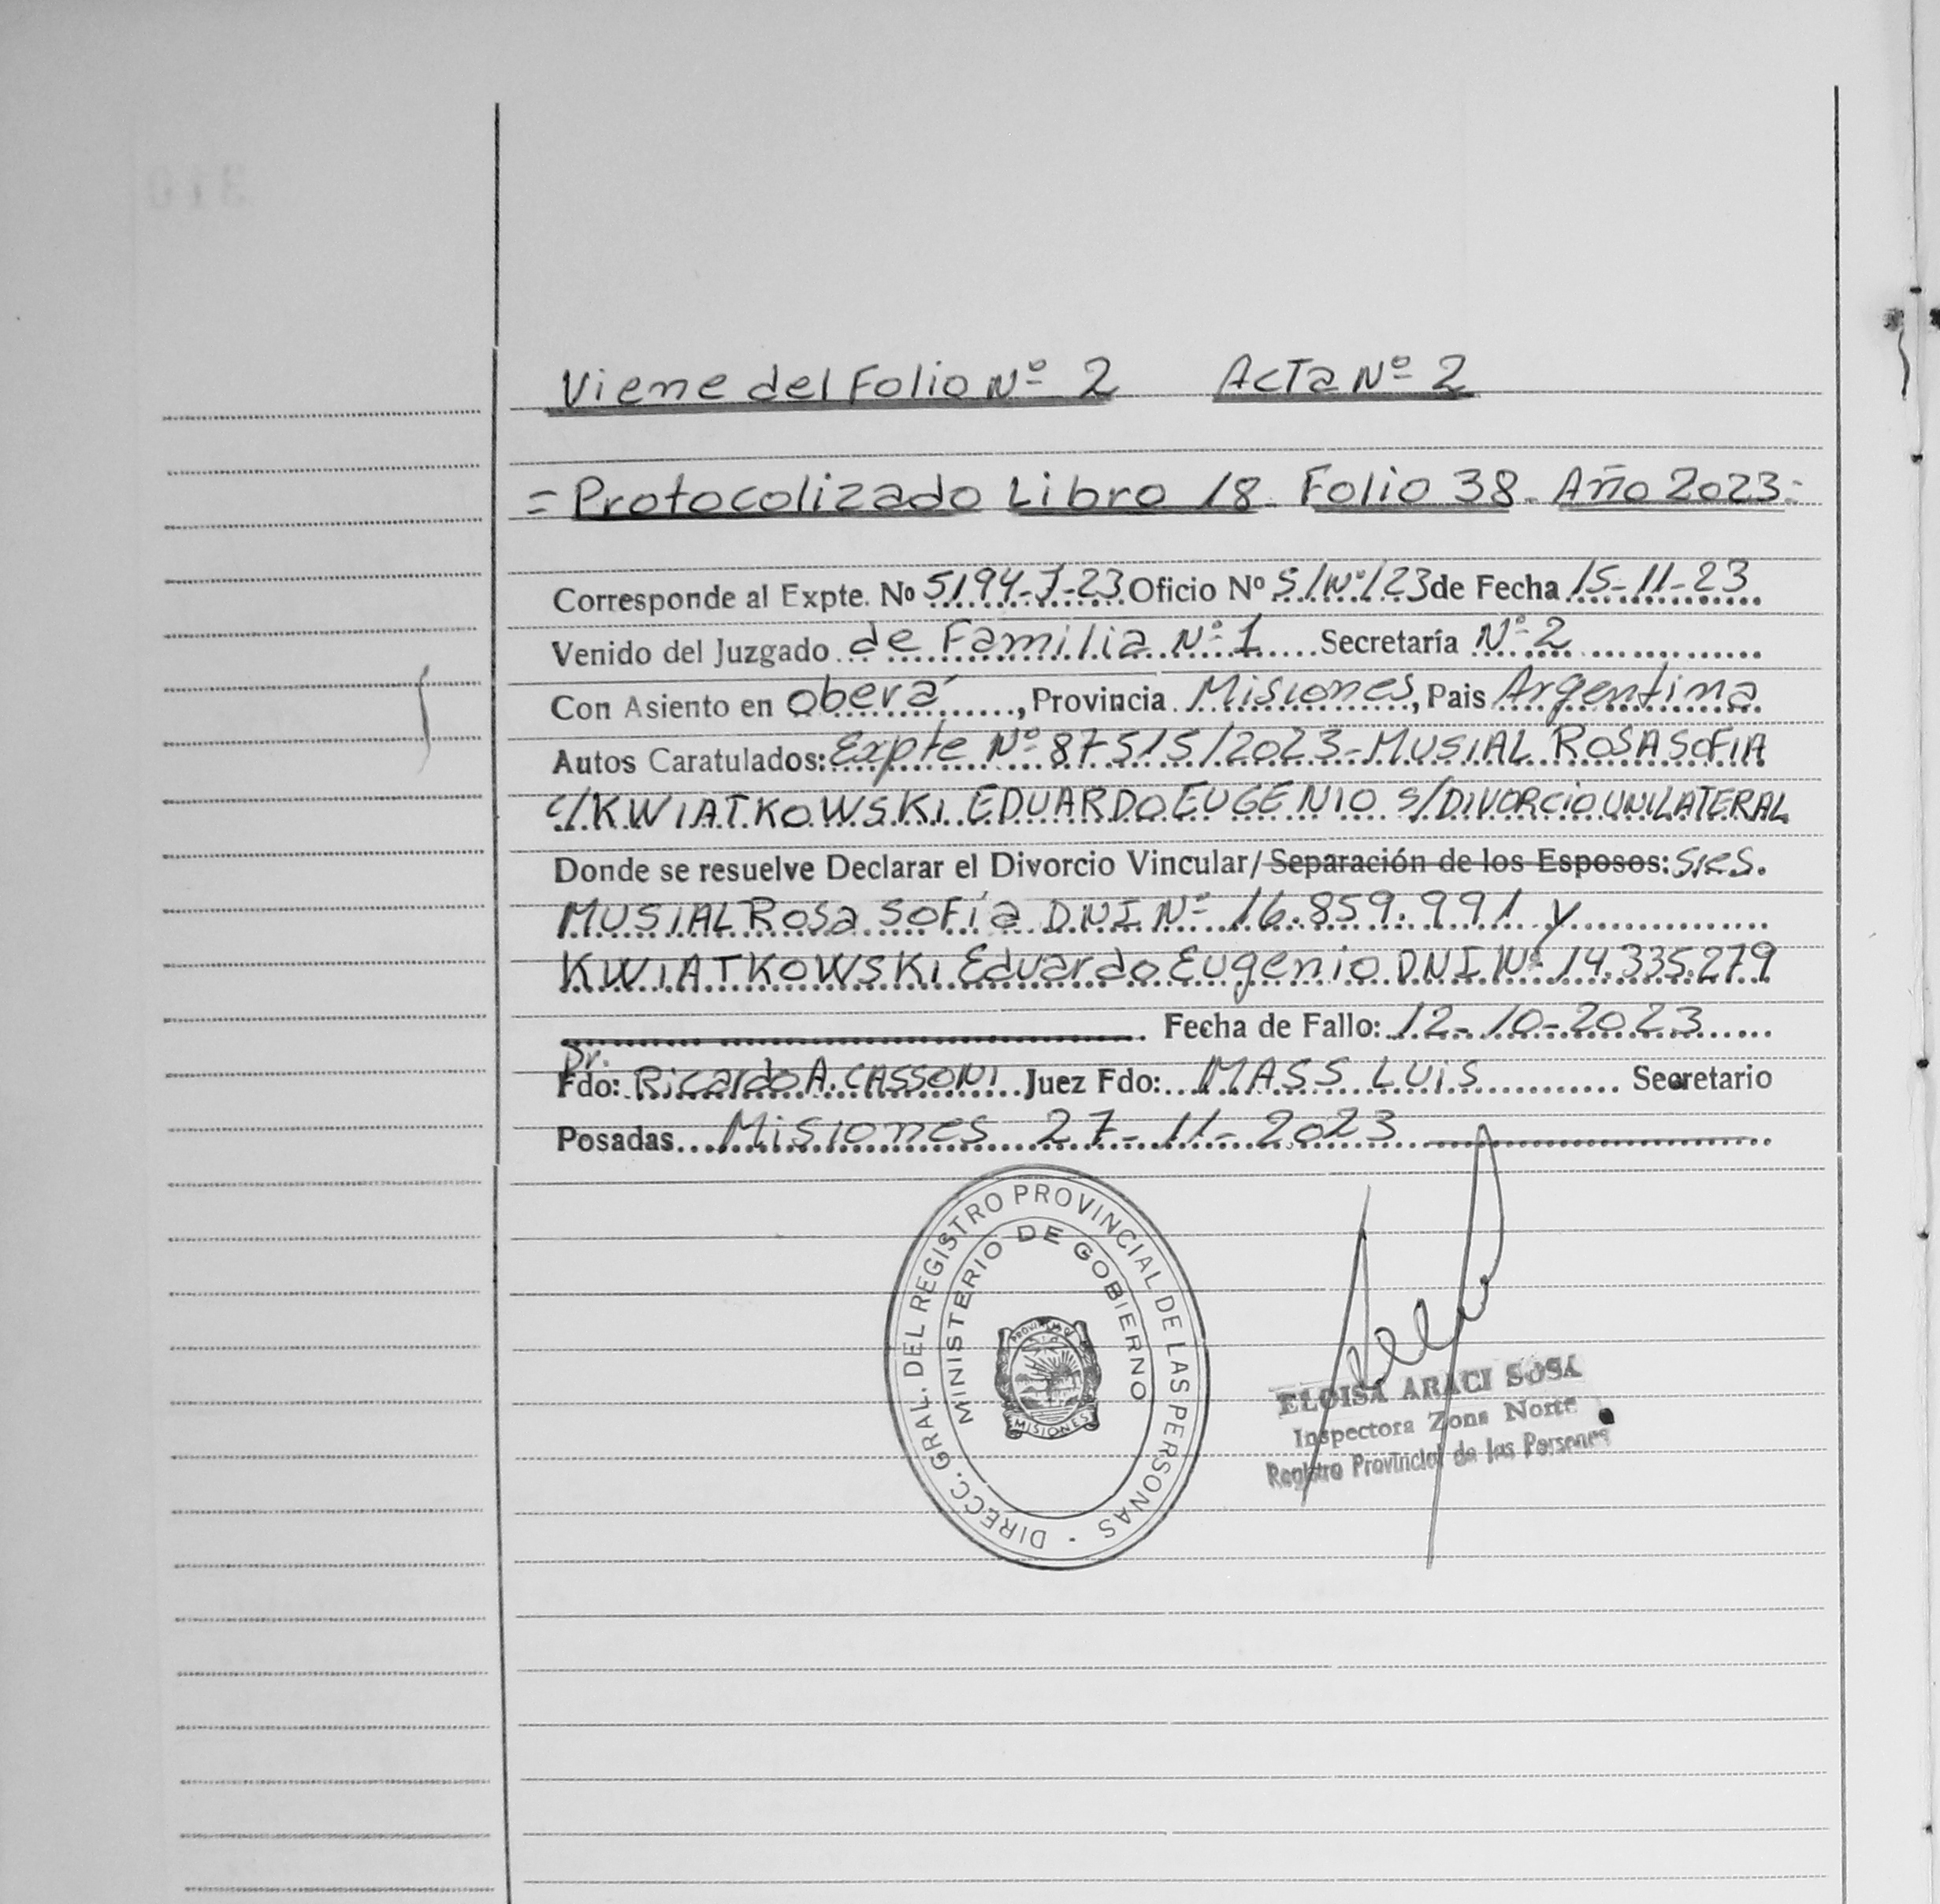 310
Viene del Folio Nº 2 Acta Nº 2
= Protocolizado Libro 18. Folio 38. Año 2023:
Corresponde al Expte. Nº 5194-J-23 Oficio Nº S/Nº/23 de Fecha 15-11-23
Venido del Juzgado de Familia Nº 1 Secretaría Nº 2
Con Asiento en Oberá, Provincia Misiones, Pais Argentina
Autos Caratulados: Expte Nº 87515/2023-MUSIAL ROSA SOFIA
c/KWIATKOWSKI EDUARDO EUGENIO s/DIVORCIO UNILATERAL
Donde se resuelve Declarar el Divorcio Vincular/Separación de los Esposos: Sres.
MUSIAL Rosa Sofía DNI Nº 16.859.991 y
KWIATKOWSKI Eduardo Eugenio DNI Nº 14.335.279
Fecha de Fallo: 12-10-2023
Dr.
Fdo: Ricardo A. CASSONI Juez Fdo: MASS LUIS Secretario
Posadas Misiones 27-11-2023
DIRECC. GRAL. DEL REGISTRO PROVINCIAL DE LAS PERSONAS -
MINISTERIO DE GOBIERNO
MISIONES
ELOISA ARACI SOSA
Inspectora Zona Norte
Registro Provincial de las Personas